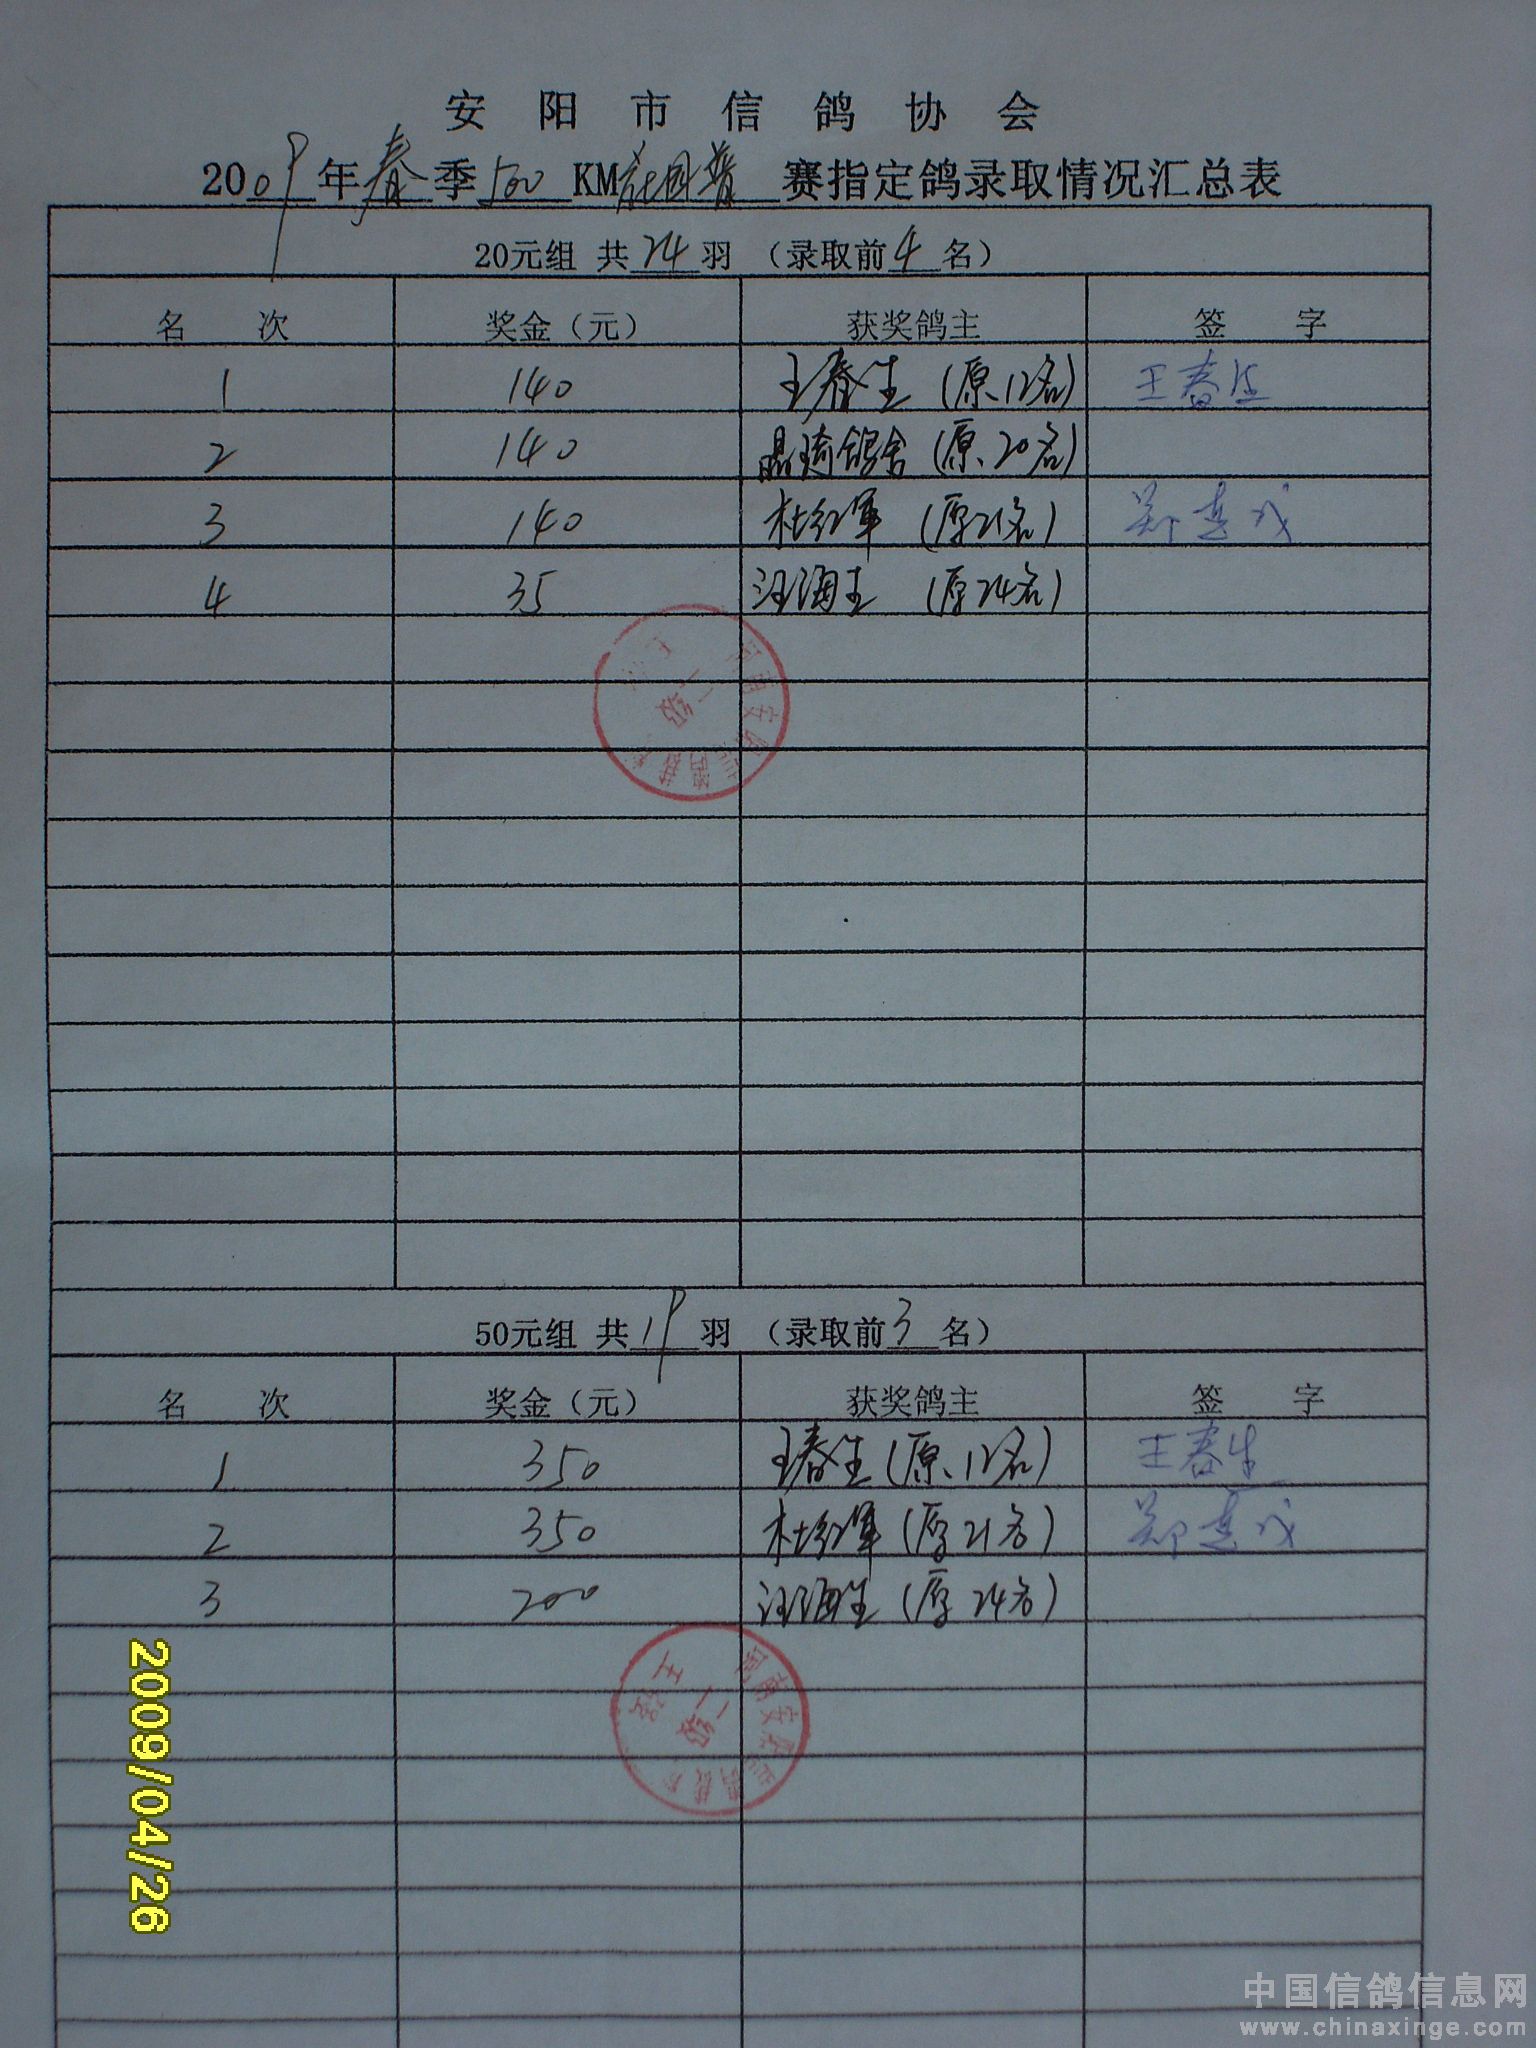 安阳市信鸽协会
2009年春季500KM 普赛指定鸽录取情况汇总表
20元组 共24羽 （录取前4名）
名 次 奖金（元） 获奖鸽主 签 字
1 140 王春生（原、12名） 王春生
2 140 晶琦鸽舍（原、20名）
3 140 杜红军（原21名）
4 35 汪海生（原24名）
50元组 共19羽 （录取前3名）
名 次 奖金（元） 获奖鸽主 签 字
1 350 王春生（原、12名） 王春生
2 350 杜红军（原21名）
3 200 汪海生（原24名）
2009/04/26
中国信鸽信息网
www.chinaxinge.com